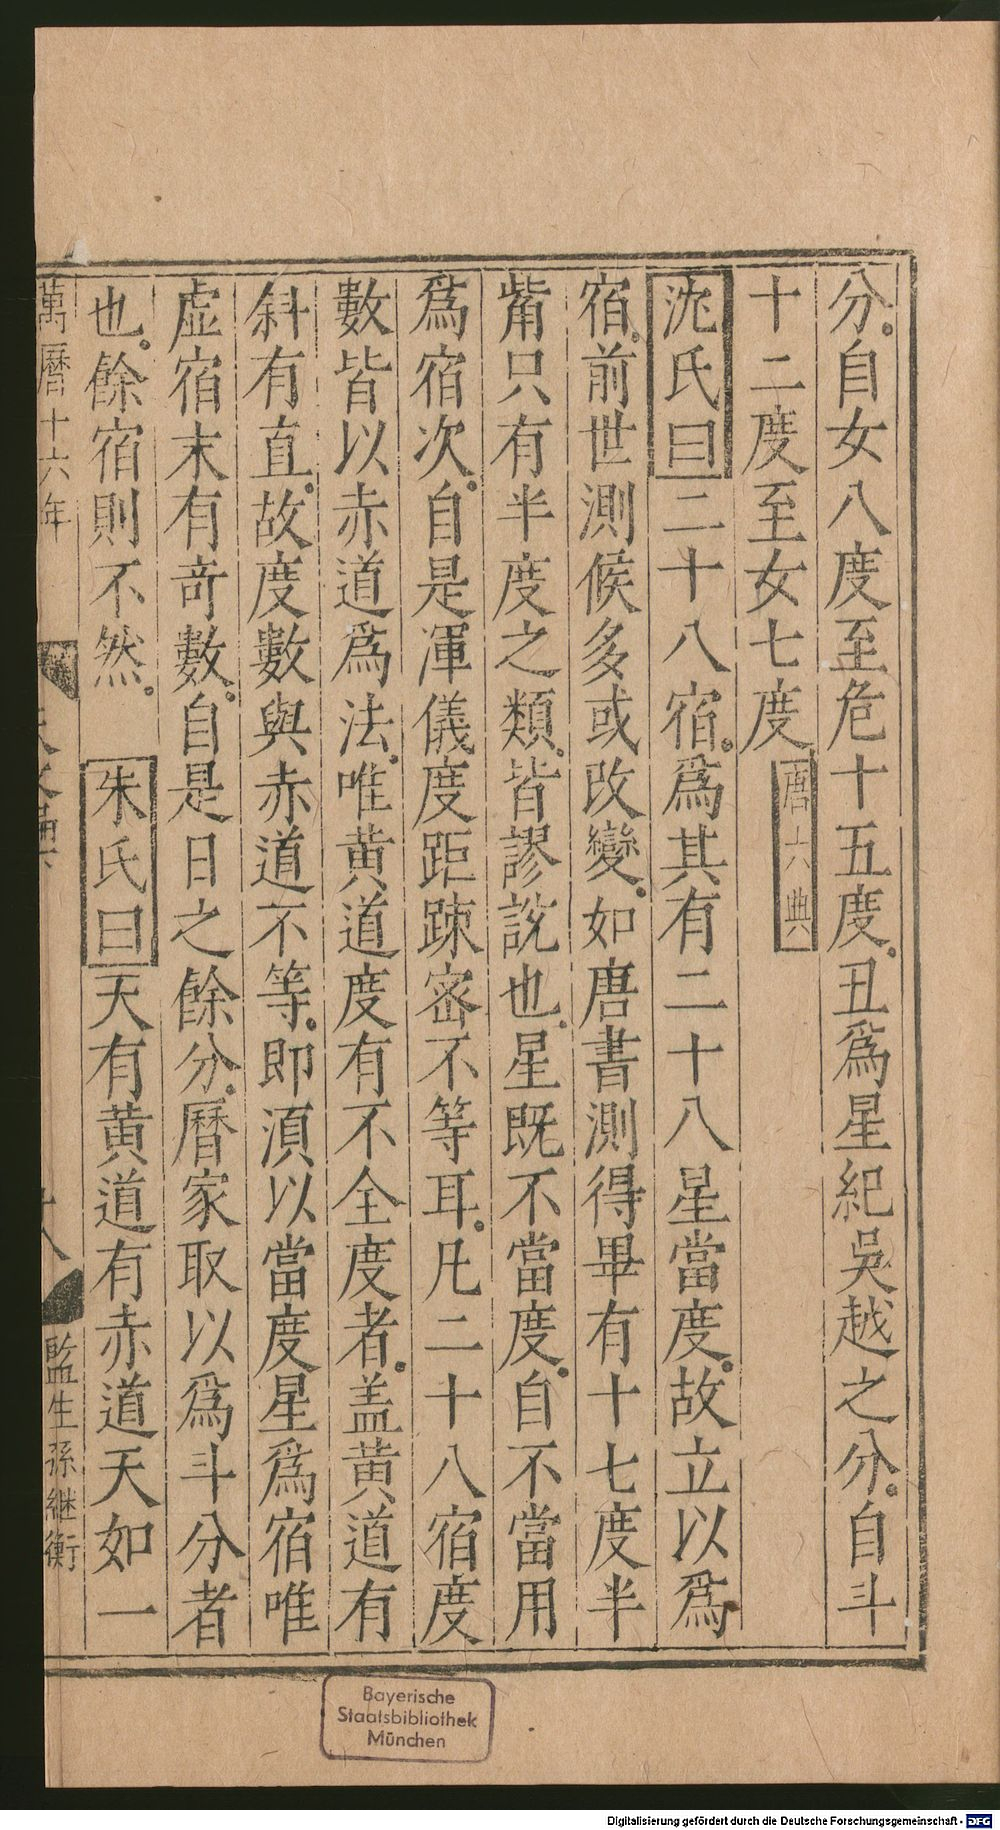 分自女八度至危十五度丑爲星紀吳越之分自斗
十二度至女七度唐六典
沈氏曰二十八宿爲其有二十八星當度故立以爲
宿前世測候多或改變如唐書測得畢有十七度半
觜只有半度之類皆謬說也星既不當度自不當用
爲宿次自是渾儀度距疎密不等耳凡二十八宿度
數皆以赤道爲法唯黄道度有不全度者盖黄道有
斜有直故度數與赤道不等即湏以當度星爲宿唯
虚宿末有竒數自是日之餘分曆家取以爲斗分者
也餘宿則不然 朱氏曰天有黄道有赤道天如一
萬曆十六年
十八
監生孫継衡
Bayerische
Staatsbibliothek
München
Digitalisierung gefördert durch die Deutsche Forschungsgemeinschaft - DFG